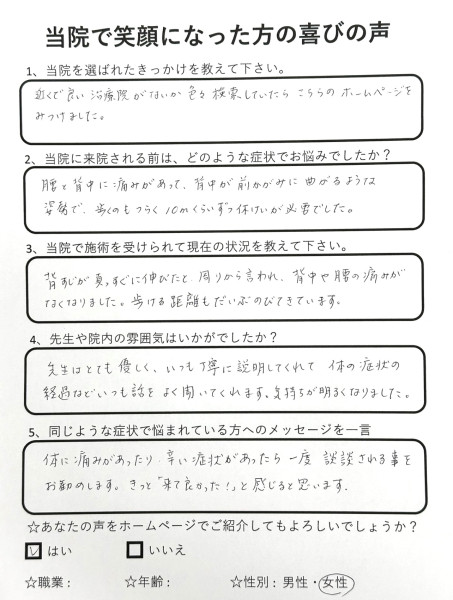 当院で笑顔になった方の喜びの声
1、当院を選ばれたきっかけを教えて下さい。
近くで良い治療院がないか色々検索していたらこちらのホームページを
みつけました。
2、当院に来院される前は、どのような症状でお悩みでしたか？
腰と背中に痛みがあって、背中が前かがみに曲がるような
姿勢で、歩くのもつらく10mくらいずつ休けいが必要でした。
3、当院で施術を受けられて現在の状況を教えて下さい。
背すじが真っすぐに伸びたと周りから言われ、背中や腰の痛みが
なくなりました。歩ける距離もだいぶのびてきています。
4、先生や院内の雰囲気はいかがでしたか？
先生はとても優しく、いつも丁寧に説明してくれて 体の症状の
経過などいつも話をよく聞いてくれます。気持ちが明るくなりました。
5、同じような症状で悩まれている方へのメッセージを一言
体に痛みがあったり辛い症状があったら一度 談談される事を
お勧めします。きっと「来て良かった！」と感じると思います。
☆あなたの声をホームページでご紹介してもよろしいでしょうか？
はい いいえ
☆職業： ☆年齢： ☆性別：男性・女性